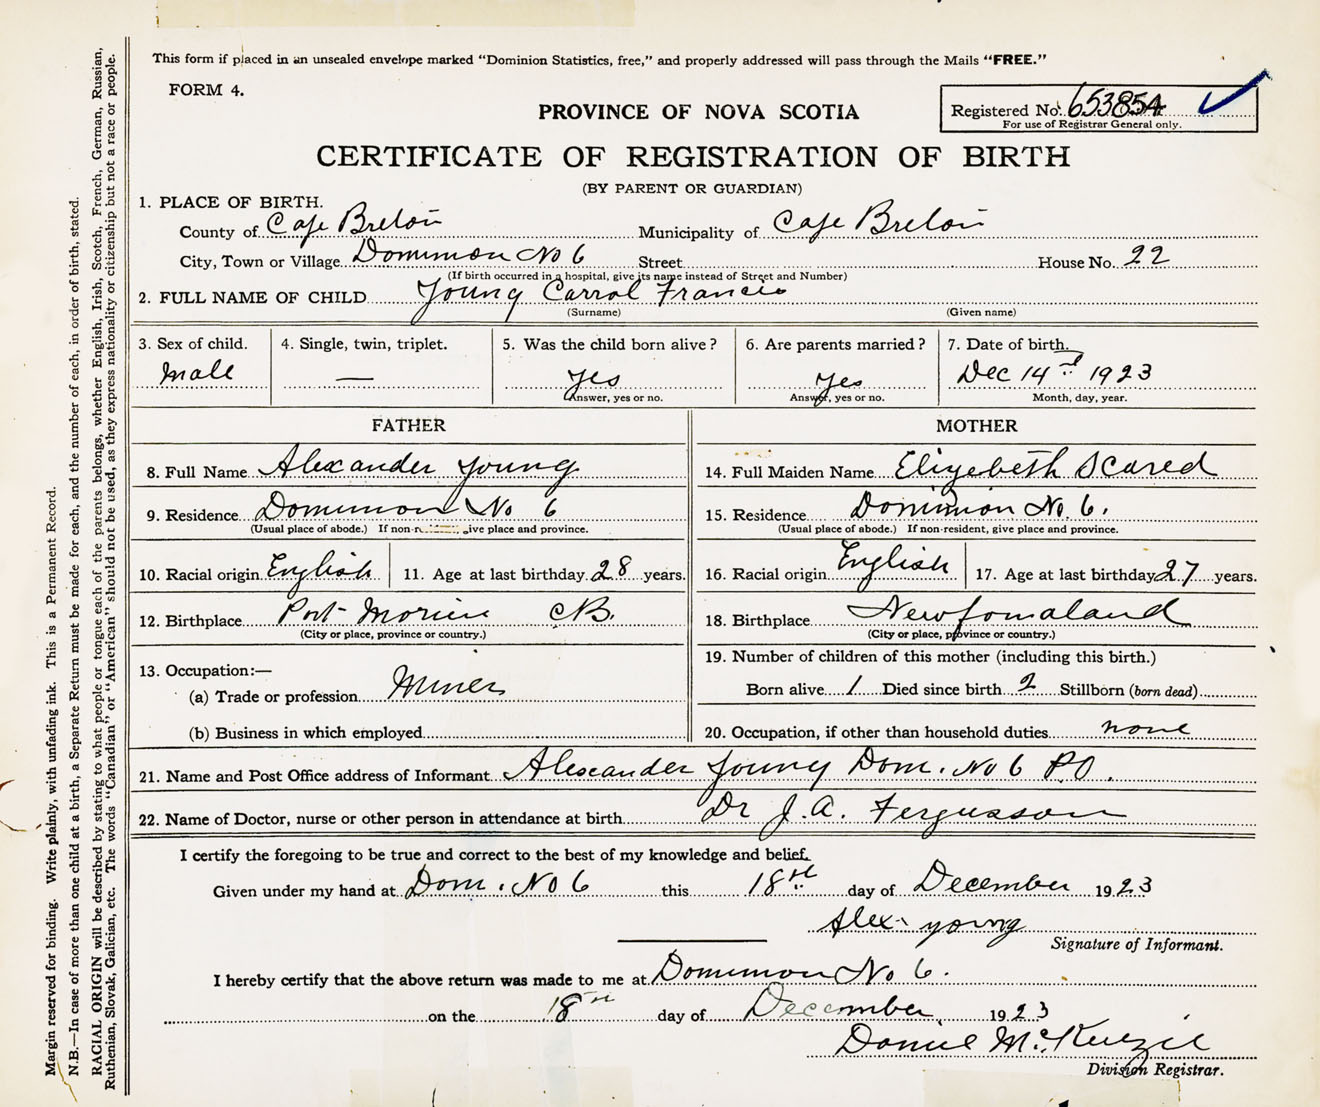 This form if placed in an unsealed envelope marked “Dominion Statistics, free,” and properly addressed will pass through the Mails “FREE.”
FORM 4.
Registered No. 653854
For use of Registrar General only.
PROVINCE OF NOVA SCOTIA
CERTIFICATE OF REGISTRATION OF BIRTH
(BY PARENT OR GUARDIAN)
1. PLACE OF BIRTH.
County of Cape Breton Municipality of Cape Breton
City, Town or Village Dominion No 6 Street House No. 22
(If birth occurred in a hospital, give its name instead of Street and Number)
2. FULL NAME OF CHILD Young Carrol Francis
(Surname) (Given name)
3. Sex of child. 4. Single, twin, triplet. 5. Was the child born alive? 6. Are parents married? 7. Date of birth.
Male — Yes Yes Dec 14th 1923
Answer, yes or no. Answer, yes or no. Month, day, year.
FATHER
8. Full Name Alexander Young
9. Residence Dominion No 6
(Usual place of abode.) If non-r ive place and province.
10. Racial origin English 11. Age at last birthday 28 years.
12. Birthplace Port Morien CB.
(City or place, province or country.)
13. Occupation:—
(a) Trade or profession Miner
(b) Business in which employed
MOTHER
14. Full Maiden Name Elizebeth Scared
15. Residence Dominion No. 6.
(Usual place of abode.) If non-resident, give place and province.
16. Racial origin English 17. Age at last birthday 27 years.
18. Birthplace Newfomaland
(City or place, province or country.)
19. Number of children of this mother (including this birth.)
Born alive 1 Died since birth 2 Stillborn (born dead)
20. Occupation, if other than household duties none
21. Name and Post Office address of Informant Alexander Young Dom. No 6 P.O.
22. Name of Doctor, nurse or other person in attendance at birth Dr J.A. Fergusson
I certify the foregoing to be true and correct to the best of my knowledge and belief.
Given under my hand at Dom. No 6 this 18th day of December 1923
Alex Young
Signature of Informant.
I hereby certify that the above return was made to me at Dominion No 6.
on the 18th day of December 1923
Daniel McKenzie
Division Registrar.
Margin reserved for binding. Write plainly, with unfading ink. This is a Permanent Record.
N.B.—In case of more than one child at a birth, a Separate Return must be made for each, and the number of each, in order of birth, stated.
RACIAL ORIGIN will be described by stating to what people or tongue each of the parents belongs, whether English, Irish, Scotch, French, German, Russian,
Ruthenian, Slovak, Galician, etc. The words “Canadian” or “American” should not be used, as they express nationality or citizenship but not a race or people.